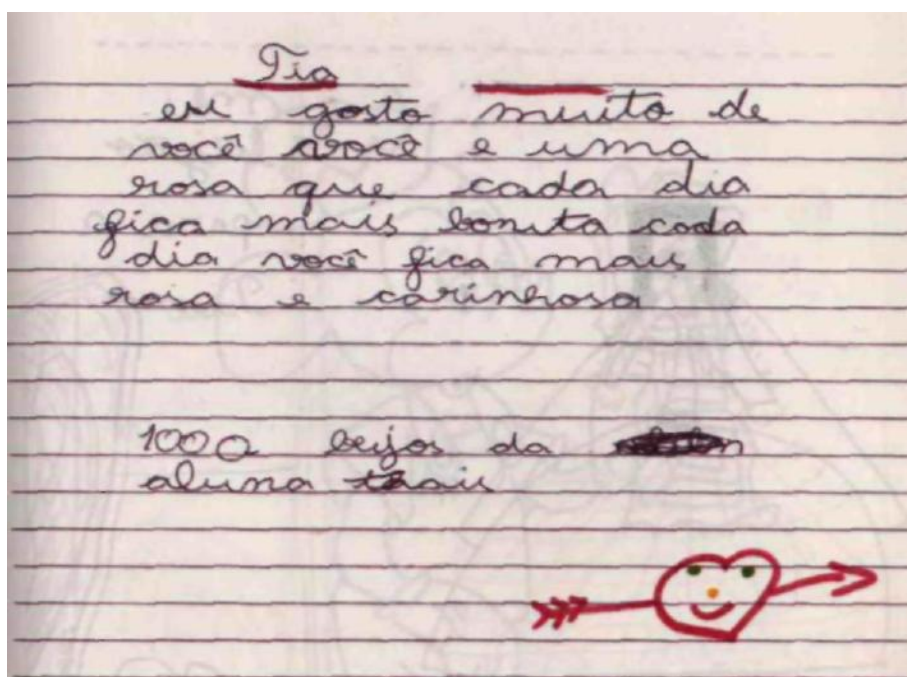 Tia
eu gosto muito de
você você e uma
rosa que cada dia
fica mais bonita cada
dia você fica mais
rosa e carinhosa
1000 beijos da
aluna thais